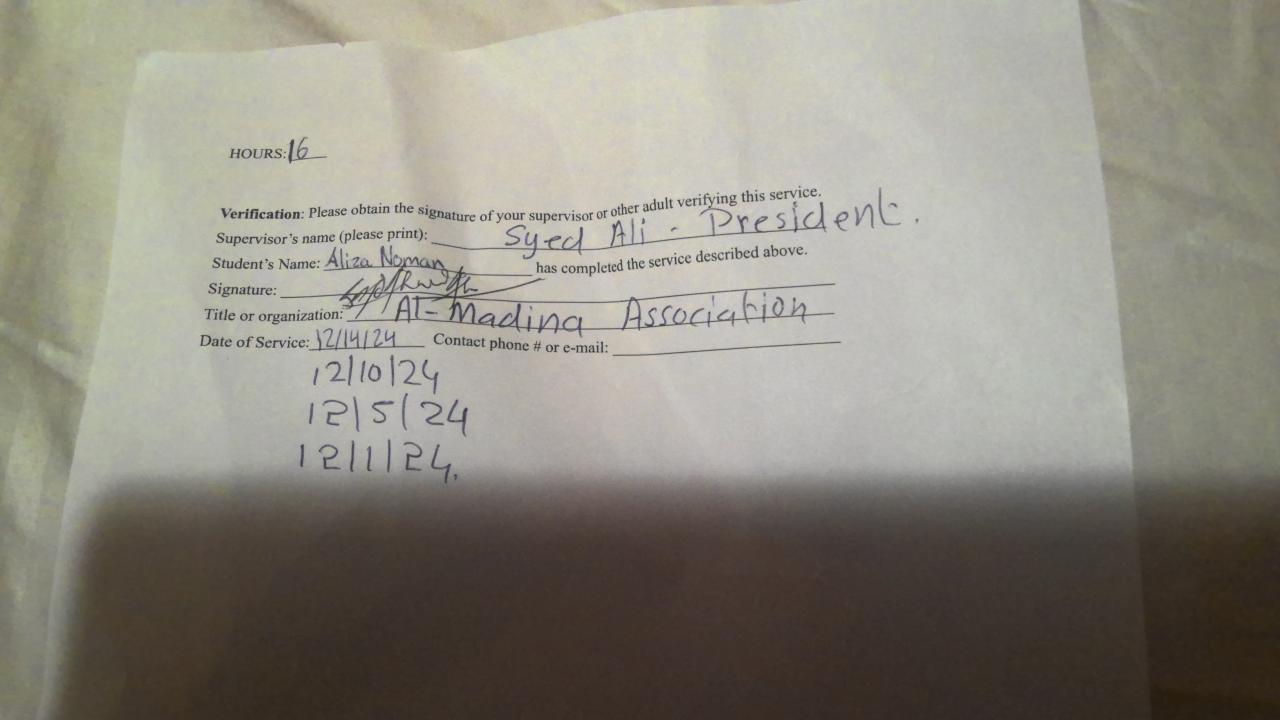 HOURS: 16
Verification: Please obtain the signature of your supervisor or other adult verifying this service.
Supervisor's name (please print): Syed Ali - President.
Student's Name: Aliza Noman has completed the service described above.
Signature:
Title or organization: Al-Madina Association
Date of Service: 12/14/24 Contact phone # or e-mail:
12/10/24
12/5/24
12/1/24.